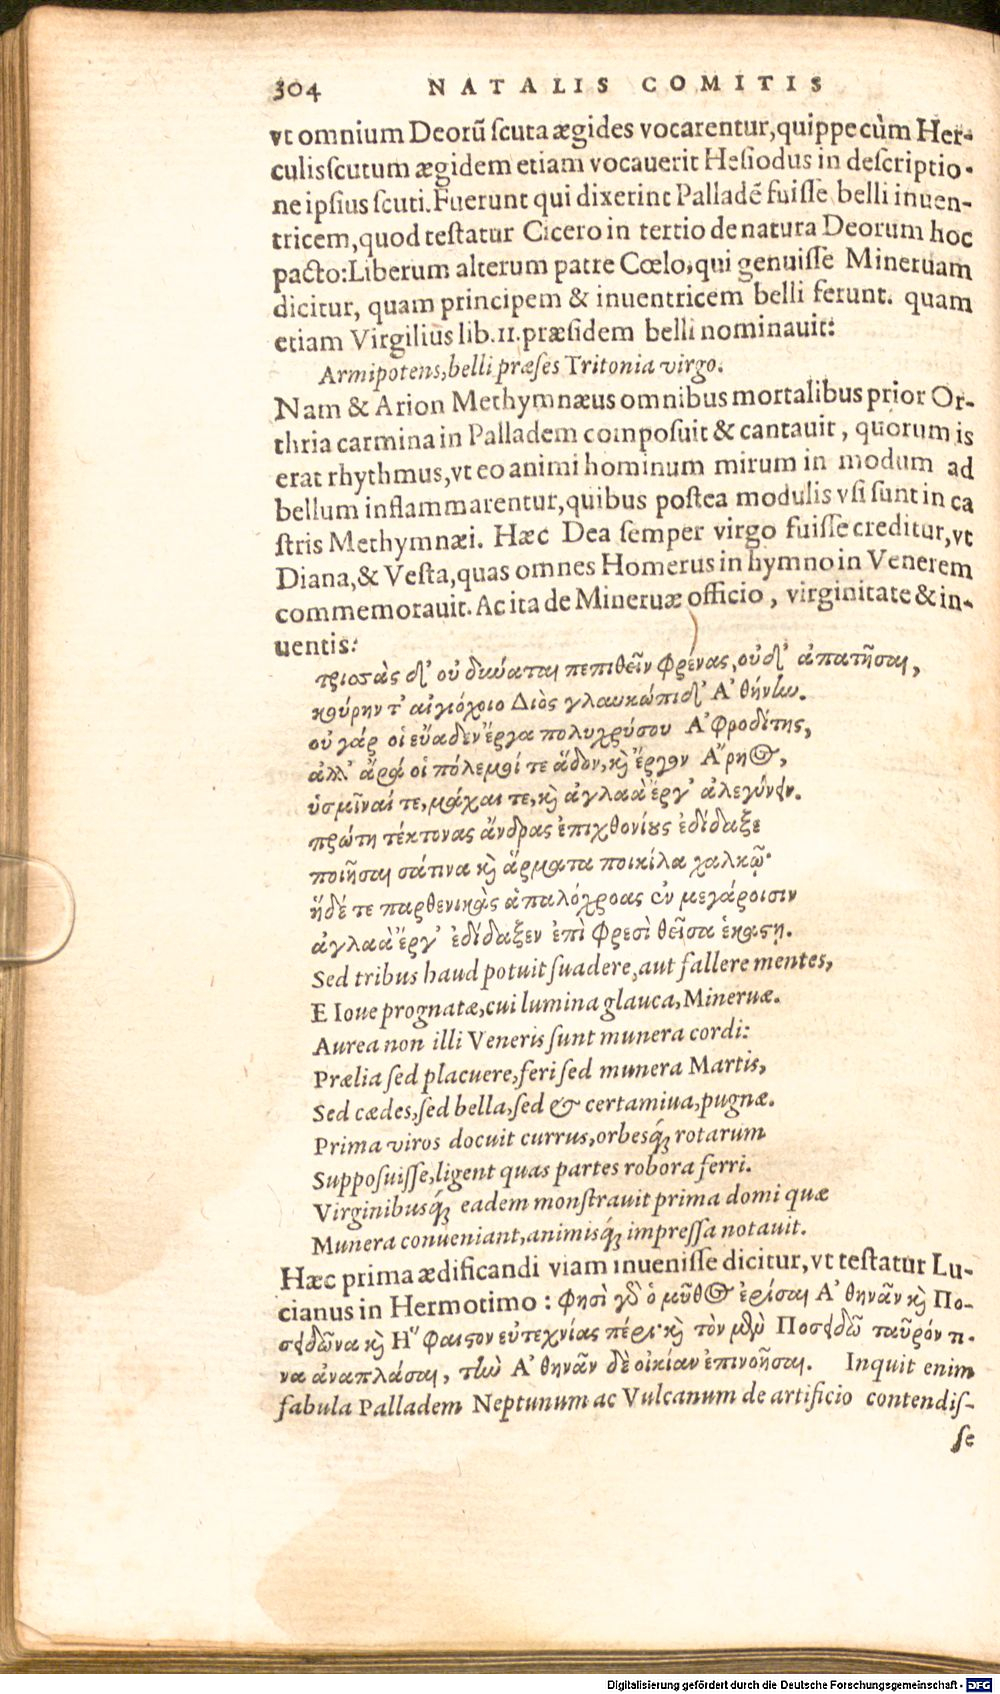 304 NATALIS COMITIS
vt omnium Deorũ scuta ægides vocarentur, quippe cùm Her-
culis scutum ægidem etiam vocauerit Hesiodus in descriptio-
ne ipsius scuti. Fuerunt qui dixerint Palladẽ fuisse belli inuen-
tricem, quod testatur Cicero in tertio de natura Deorum hoc
pacto: Liberum alterum patre Cœlo, qui genuisse Mineruam
dicitur, quam principem & inuentricem belli ferunt. quam
etiam Virgilius lib. 11. præsidem belli nominauit:
Armipotens, belli præses Tritonia virgo.
Nam & Arion Methymnæus omnibus mortalibus prior Or-
thria carmina in Palladem composuit & cantauit, quorum is
erat rhythmus, vt eo animi hominum mirum in modum ad
bellum inflammarentur, quibus postea modulis vsi sunt in ca
stris Methymnæi. Hæc Dea semper virgo fuisse creditur, vt
Diana, & Vesta, quas omnes Homerus in hymno in Venerem
commemorauit. Ac ita de Mineruæ officio, virginitate & in-
uentis:
τρισσὰς δ' οὐ δύναται πεπιθεῖν φρένας, οὐδ' ἀπατῆσαι,
κούρην τ' αἰγιόχοιο Διὸς γλαυκώπιδ' Ἀθήνην.
οὐ γάρ οἱ εὔαδεν ἔργα πολυχρύσου Ἀφροδίτης,
ἀλλ' ἄρα οἱ πόλεμοί τε ἅδον, καὶ ἔργον Ἄρηος,
ὑσμῖναί τε, μάχαι τε, καὶ ἀγλαὰ ἔργ' ἀλεγύνειν.
πρώτη τέκτονας ἄνδρας ἐπιχθονίους ἐδίδαξε
ποιῆσαι σάτινα καὶ ἅρματα ποικίλα χαλκῷ·
ἥδέ τε παρθενικὰς ἁπαλόχροας ἐν μεγάροισιν
ἀγλαὰ ἔργ' ἐδίδαξεν ἐπὶ φρεσὶ θεῖσα ἑκάστῃ.
Sed tribus haud potuit suadere, aut fallere mentes,
E Ioue prognatæ, cui lumina glauca, Mineruæ.
Aurea non illi Veneris sunt munera cordi:
Prælia sed placuere, feri sed munera Martis,
Sed cædes, sed bella, sed & certamiua, pugnæ.
Prima viros docuit currus, orbesq́; rotarum
Supposuisse, ligent quas partes robora ferri.
Virginibusq́; eadem monstrauit prima domi quæ
Munera conueniant, animisq́; impressa notauit.
Hæc prima ædificandi viam inuenisse dicitur, vt testatur Lu-
cianus in Hermotimo: φησὶ γὰρ ὁ μῦθος ἐρίσαι Ἀθηνᾶν καὶ Πο-
σειδῶνα καὶ Ἥφαιστον εὐτεχνίας πέρι· καὶ τὸν μὲν Ποσειδῶ ταῦρόν τι-
να ἀναπλάσαι, τὴν Ἀθηνᾶν δὲ οἰκίαν ἐπινοῆσαι. Inquit enim
fabula Palladem Neptunum ac Vulcanum de artificio contendis-
se
Digitalisierung gefördert durch die Deutsche Forschungsgemeinschaft - DFG